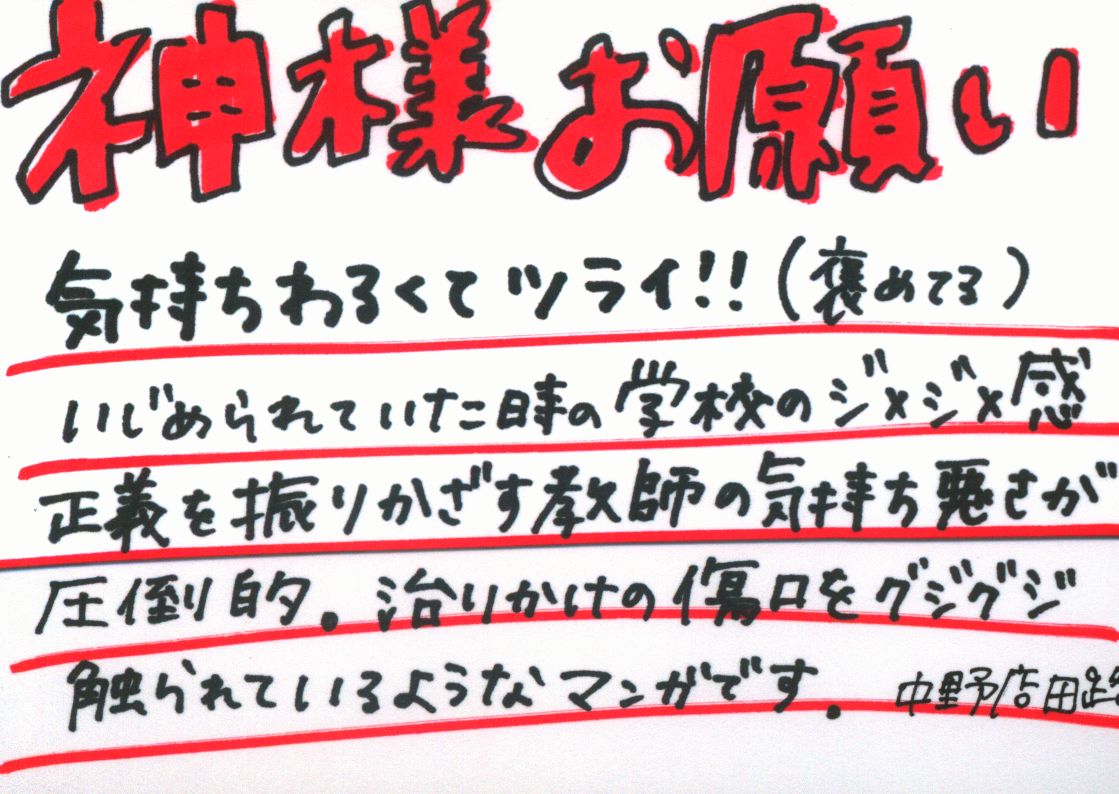 神様お願い
気持ちわるくてツライ!!(褒めてる)
いじめられていた時の学校のジメジメ感
正義を振りかざす教師の気持ち悪さが
圧倒的。治りかけの傷口をグジグジ
触られているようなマンガです。 中野店田